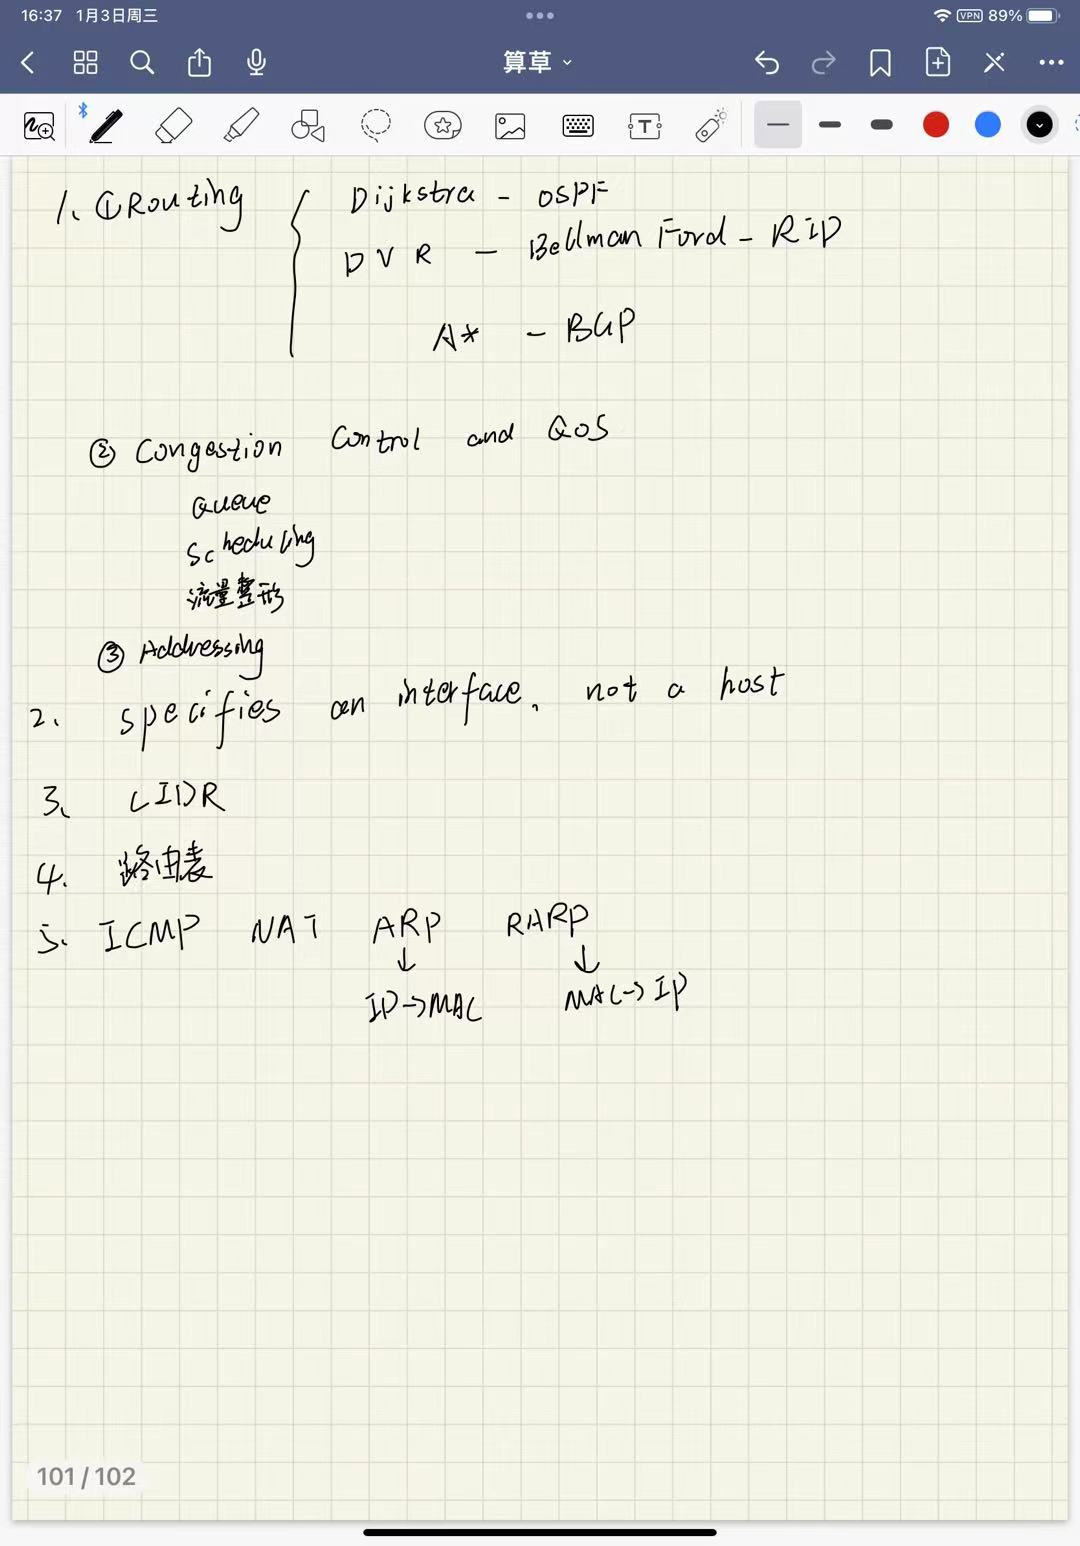 16:37 1月3日周三
VPN 89%
算草
T
1、①Routing
Dijkstra - OSPF
DVR - Bellman Ford - RIP
A* - BGP
② Congestion Control and QoS
Queue
Scheduling
流量整形
③ Addressing
2、 specifies an interface, not a host
3、 CIDR
4. 路由表
5. ICMP NAT ARP RARP
↓ ↓
IP→MAC MAC→IP
101 / 102